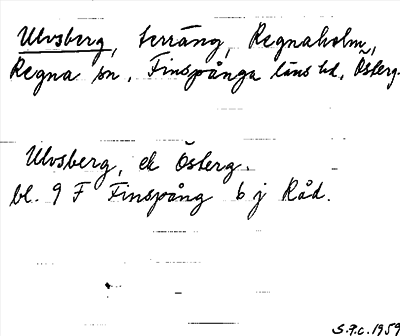 Ulvsberg, terräng, Regnaholm,
Regna sn, Finspånga läns hd, Österg.
Ulvsberg, ek Österg.
bl. 9 F Finspång 6 j Råd.
S.g.c. 1959